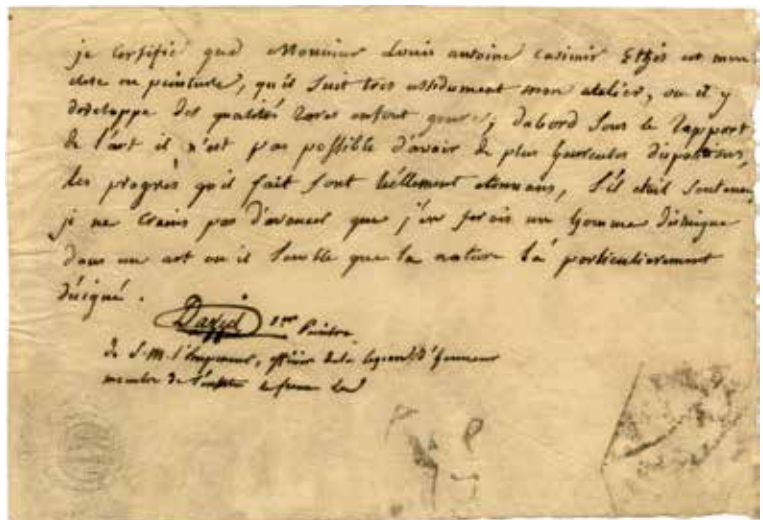 je certifie que Monsieur Louis antoine casimir est mon
eleve en peinture, qu'il suit tres assidument mon atelier, ou il y
developpe des qualités rares entout genre; dabord sous le rapport
de l'art il n'est pas possible d'avoir de plus heureuses dispositions,
les progrès qu'il fait sont réellement etonnans, s'il etait soutenu,
je ne crains pas d'avancer que j'en ferois un homme distingué
dans un art ou il semble que la nature l'a particulierement
désigné.
David 1er Peintre
de S. M. l'Empereur, officier de la legion d'honneur
membre de l'institut de france &c